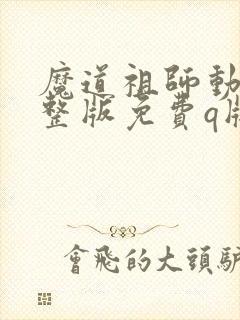 魔道祖師動
整版免費q版
會飛的大頭驢